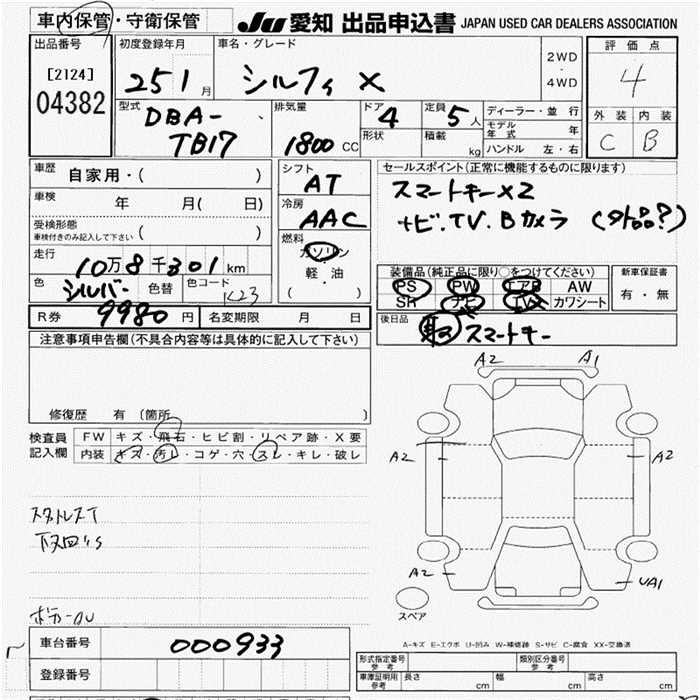 車内保管・守衛保管
JU 愛知 出品申込書 JAPAN USED CAR DEALERS ASSOCIATION
出品番号
[2124]
04382
初度登録年月
25 1 月
車名・グレード
シルフィ X
2WD
・
4WD
評価点
4
外装 内装
C B
型式
DBA-
TB17
排気量
1800 CC
ドア 4
形状
定員 5 人
積載 kg
ディーラー・並行
モデル年式 年
ハンドル 左・右
車歴 自家用・( )
車検 年 月( 日)
受検形態
車検付きのみ記入して下さい ( )
走行
10万8千301km
色 シルバー 色替 色コード K23
シフト
AT
冷房
AAC
燃料
ガソリン
軽・油
( )
セールスポイント(正常に機能するものに限ります)
スマートキーX2
ナビ.TV.Bカメラ (外品?)
装備品(純正品に限り○をつけてください)
PS PW エアB AW
SR ナビ TV カワシート
新車保証書
有・無
後日品
スマートキー
R券 9980 円 名変期限 月 日
注意事項申告欄(不具合内容等は具体的に記入して下さい)
修復歴 有(箇所 )
検査員記入欄
FW キズ・飛石・ヒビ割・リペア跡・X要
内装 キズ・汚レ・コゲ・穴・スレ・キレ・破レ
A2 A1
A2 A2
A2 UA1
スペア
スタットレスT
A-キズ E-エクボ U-凹み W-補修跡 S-サビ C-腐食 XX-交換済
車台番号 000933
登録番号
形式指定番号 参考
類別区分番号 参考
車庫証明用 参考 長さ cm 幅 cm 高さ cm